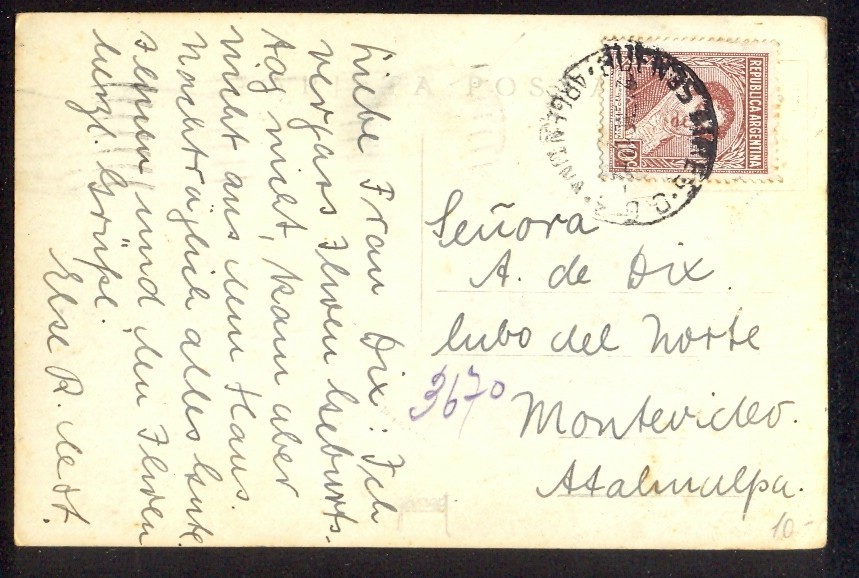 Liebe Frau Dix! Ich
vergass Ihren Geburts-
tag nicht, kam aber
nicht aus dem Haus.
Nachträglich alles Gute
Ihnen und den Ihren
herzl. Grüße.
Else R.
TARJETA POSTAL
REPUBLICA ARGENTINA
10
BUENOS AIRES
ARGENTINA
Señora
A. de Dix
Lubo del Norte
3670
Montevideo.
Atalmualpa.
10-